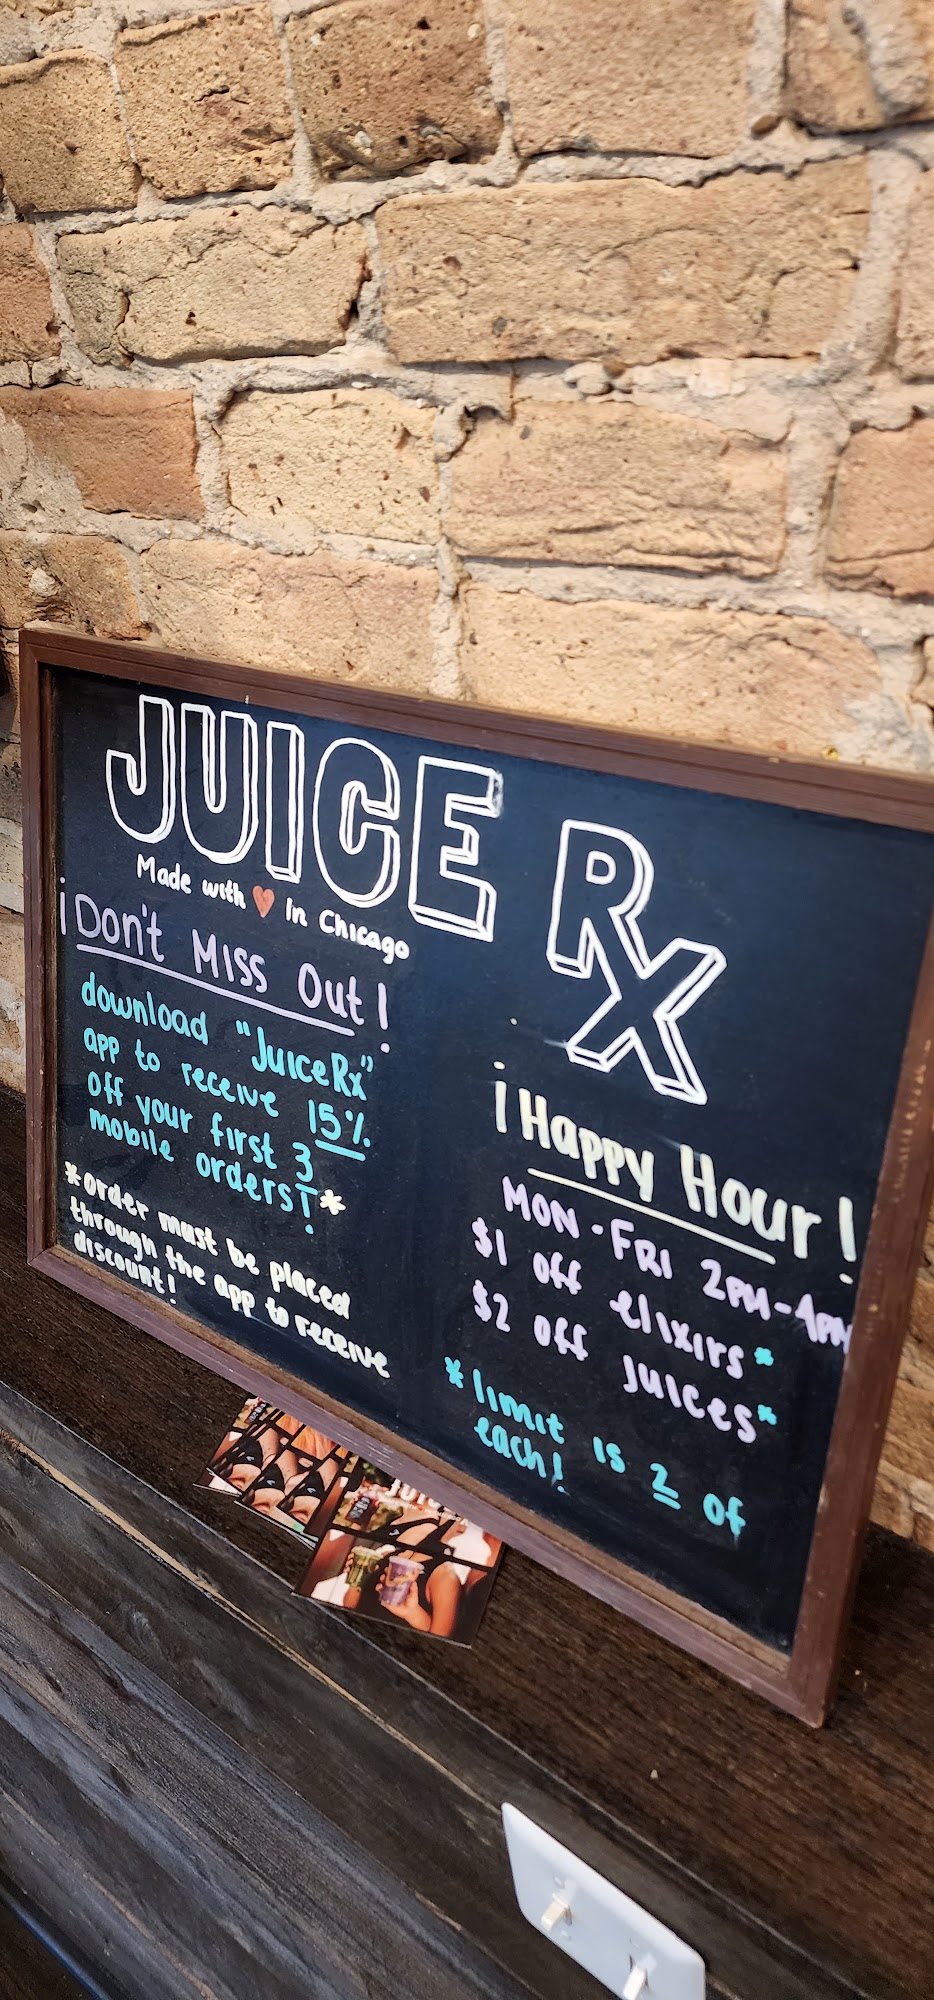 JUICE RX
Made with ❤ In Chicago
¡Don't Miss Out!
download "JuiceRx"
app to receive 15%
off your first 3
mobile orders!*
*order must be placed
through the app to receive
discount!
¡Happy Hour!
MON-FRI 2PM-4PM
$1 off elixirs*
$2 off juices*
*limit is 2 of
each!